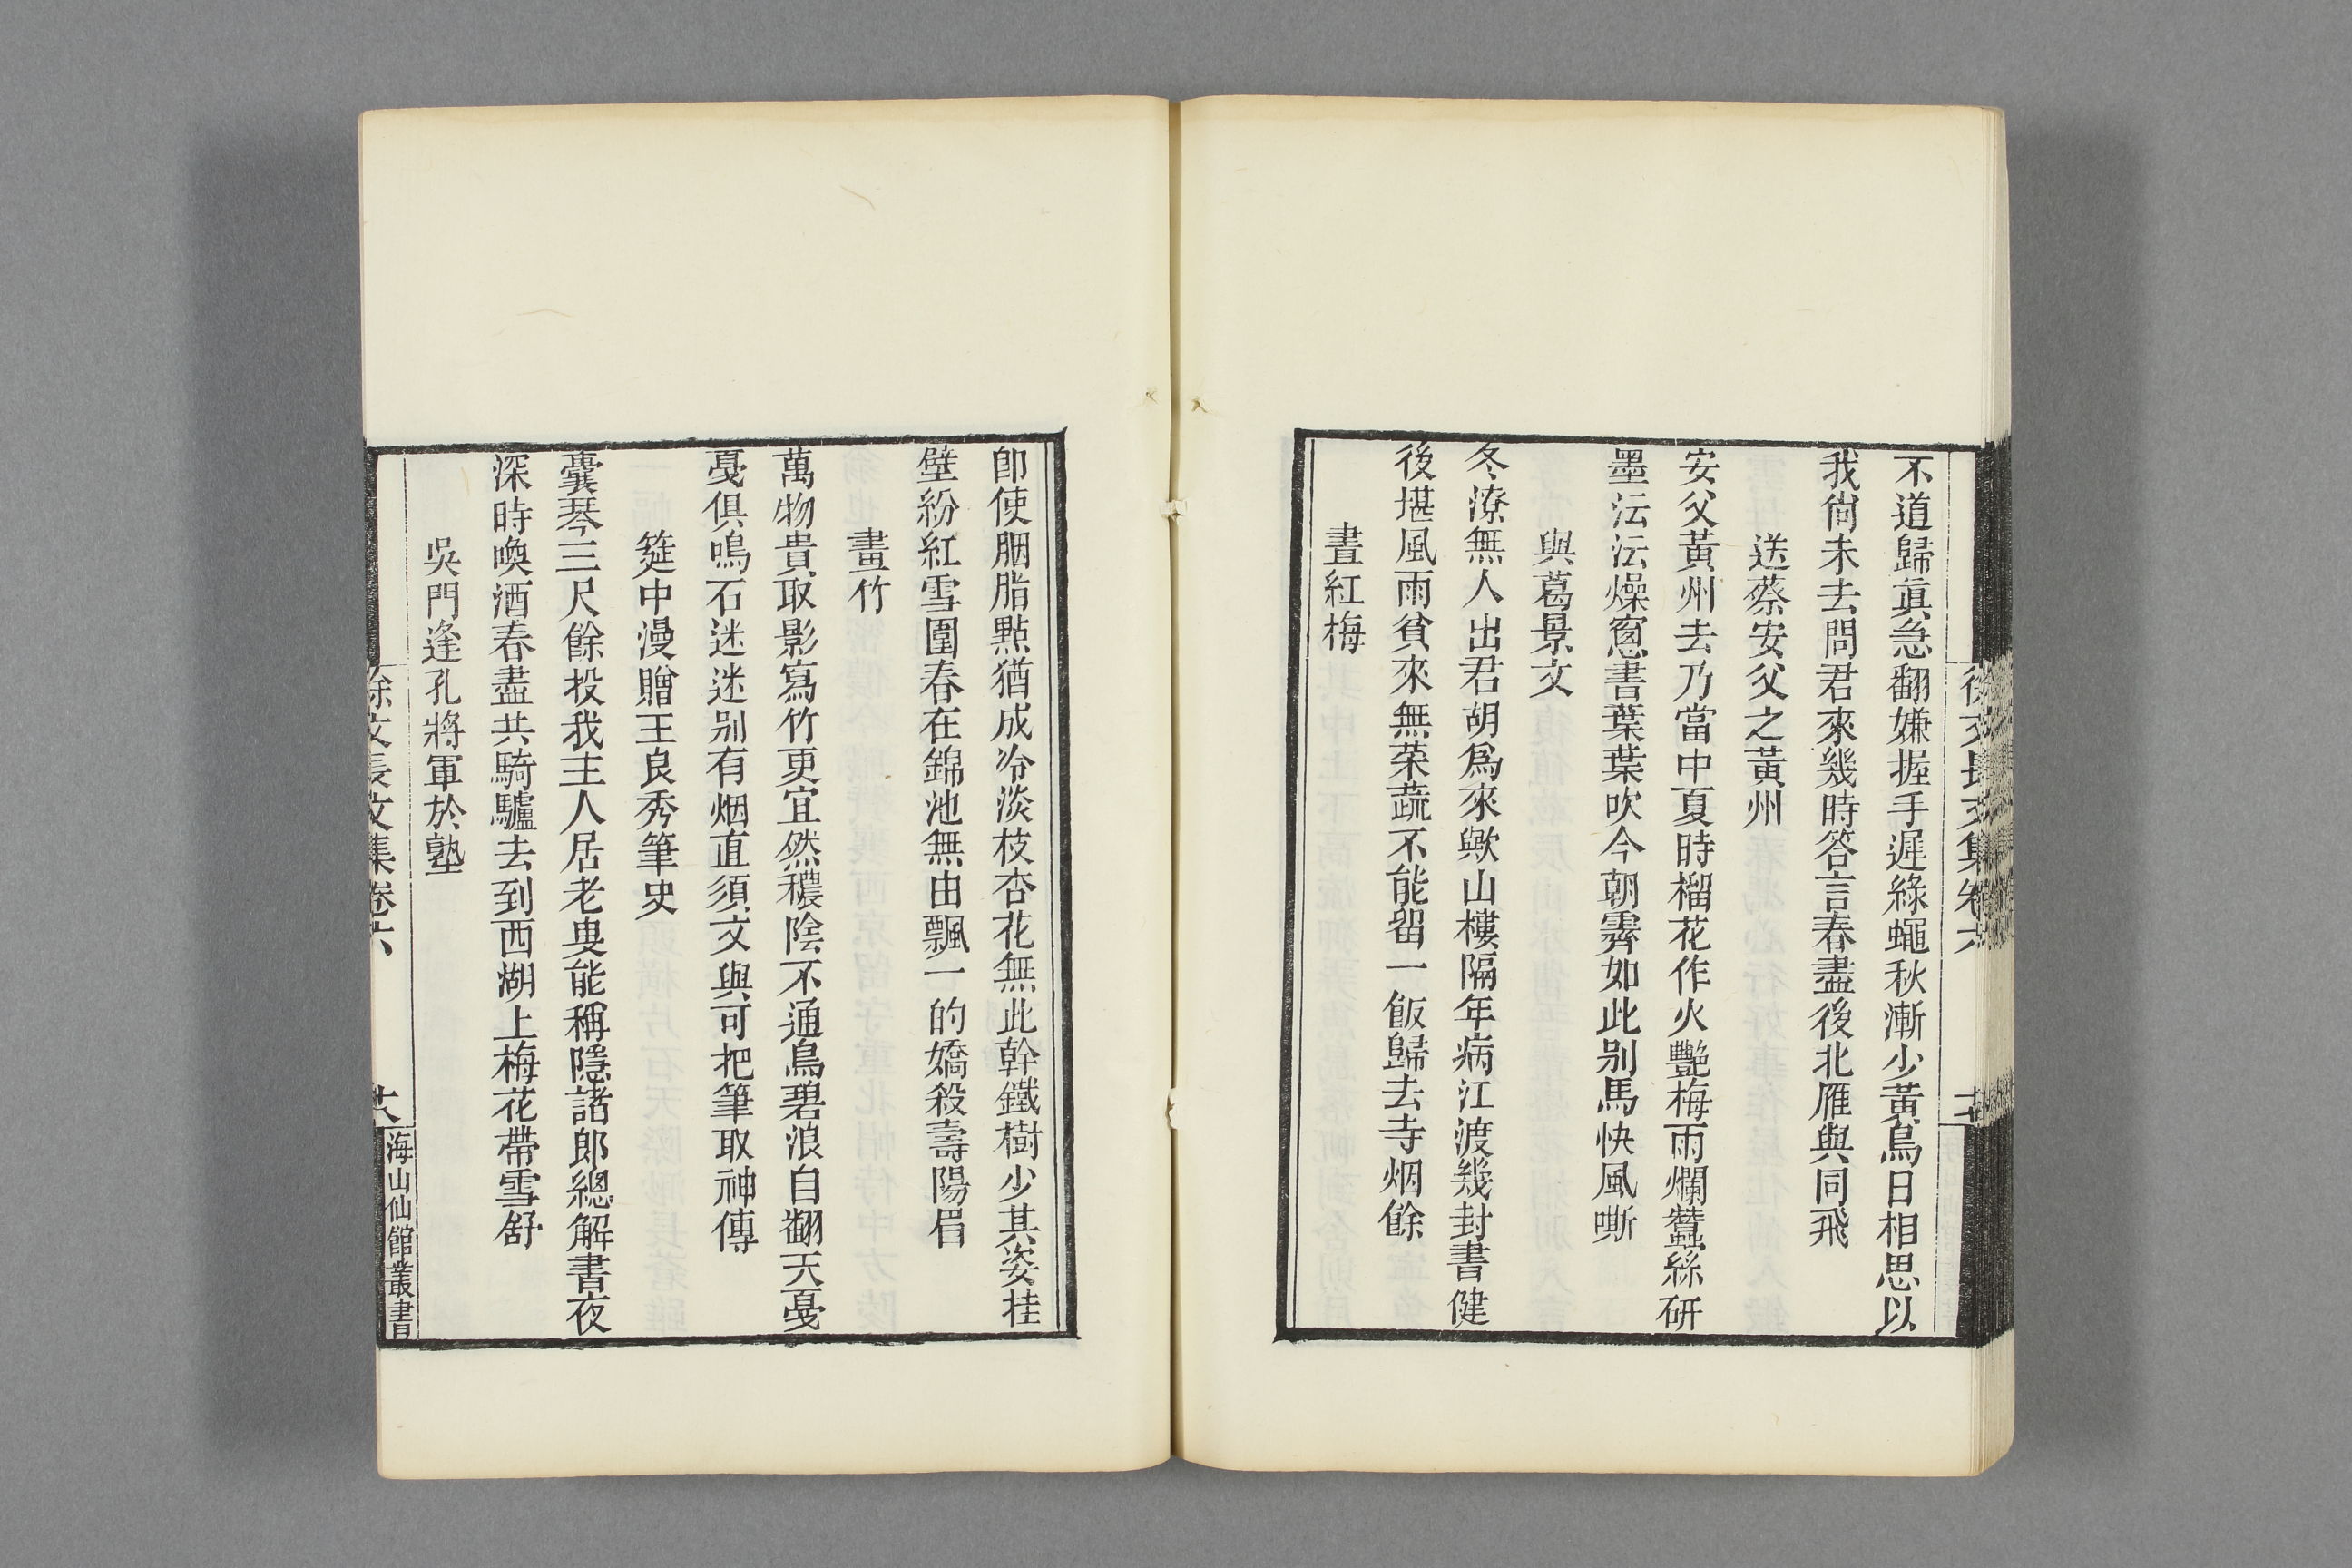 不道歸眞急翻嫌握手遲綠蠅秋漸少黃鳥日相思以
我尙未去問君來幾時答言春盡後北雁與同飛
送蔡安父之黃州
安父黃州去乃當中夏時榴花作火艷梅雨爛蠶絲研
墨沄沄燥窻書葉葉吹今朝霽如此别馬快風嘶
與葛景文
冬潦無人出君胡爲來歟山樓隔年病江渡幾封書健
後堪風雨貧來無菜蔬不能留一飯歸去寺烟餘
畫紅梅
徐文長文集卷六
卽使胭脂點猶成冷淡枝杏花無此幹鐵樹少其姿挂
壁紛紅雪圍春在錦池無由飄一的嬌殺壽陽眉
畫竹
萬物貴取影寫竹更宜然穠陰不通鳥碧浪自翻天戞
戞俱鳴石迷迷别有烟直須文與可把筆取神傳
筵中漫贈王良秀筆史
囊琴三尺餘投我主人居老㕰能稱隱諸郎總解書夜
深時喚酒春盡共騎驢去到西湖上梅花帶雪舒
吳門逢孔將軍於塾
徐文長文集卷六
海山仙館叢書